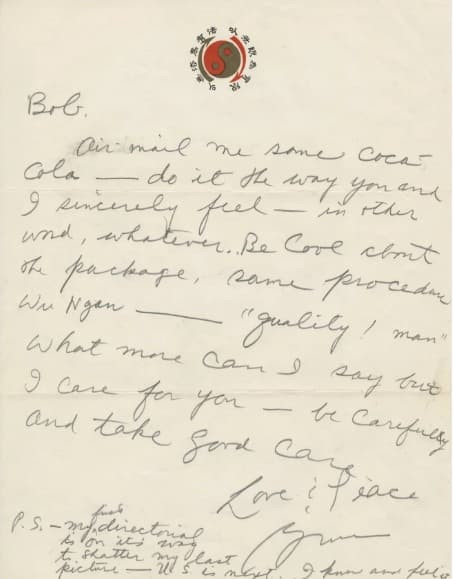 以無法為有法 以無限為有限
Bob.
Air mail me some Coca-
Cola — do it the way you and
I sincerely feel — in other
word, whatever.. Be Cool about
the package, same procedure
Wu Ngan — "quality! man"
What more can I say but
I care for you — be carefully
and take good care
Love & Peace
Bruce
P.S. — my first directorial
is on it's way
to shatter my last
picture — U.S. is next. I know and feel it